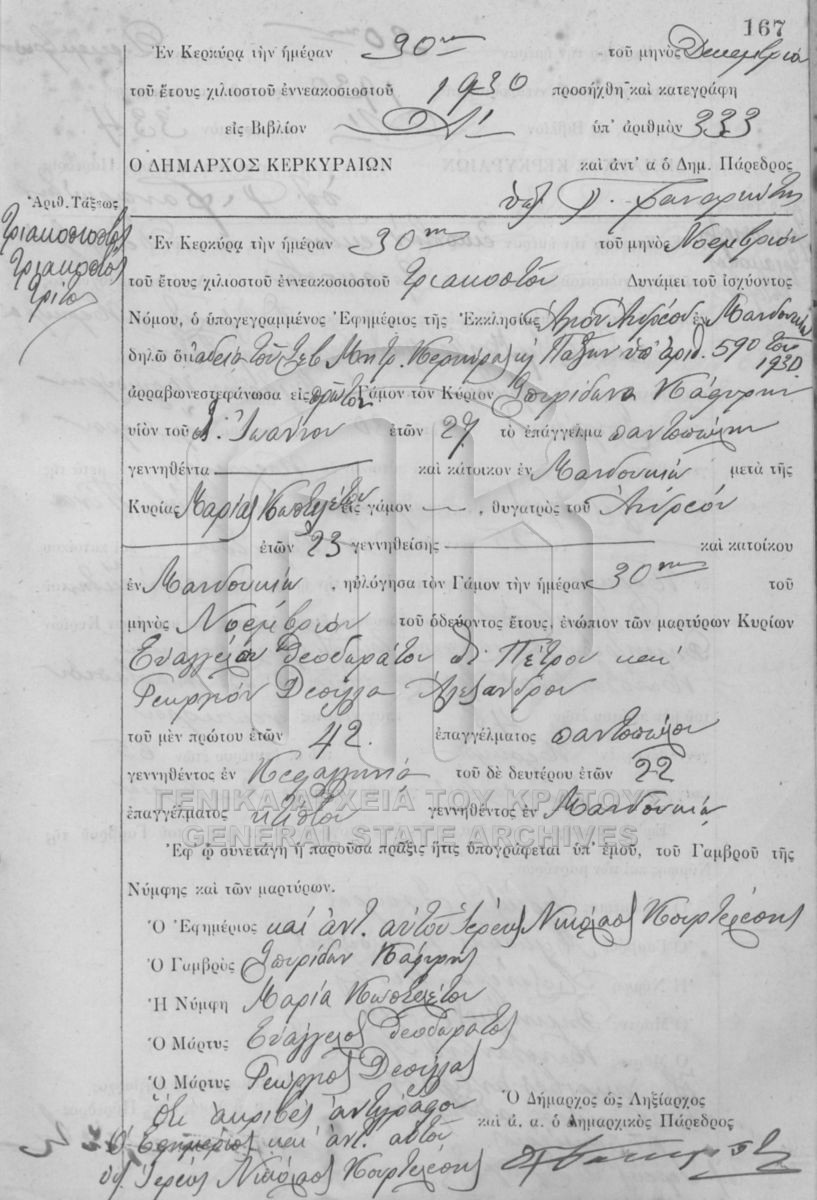 167
Ἐν Κερκύρᾳ τὴν ἡμέραν 30ην τοῦ μηνὸς Δεκεμβρίου
τοῦ ἔτους χιλιοστοῦ ἐννεακοσιοστοῦ 1930 προσήχθη καὶ κατεγράφη
εἰς Βιβλίον Δ' ὑπ' ἀριθμὸν 333
Ὁ ΔΗΜΑΡΧΟΣ ΚΕΡΚΥΡΑΙΩΝ καὶ ἀντ' α ὁ Δημ. Πάρεδρος
Ἀριθ. Τάξεως
τριακοσιοστὸς
τριακοστὸς
τρίτος
Ἐν Κερκύρᾳ τὴν ἡμέραν 30ην τοῦ μηνὸς Νοεμβρίου
τοῦ ἔτους χιλιοστοῦ ἐννεακοσιοστοῦ τριακοστοῦ Δυνάμει τοῦ ἰσχύοντος
Νόμου, ὁ ὑπογεγραμμένος Ἐφημέριος τῆς Ἐκκλησίας Ἁγίου Ἀνδρέου ἐν Μανδουκίῳ
δηλῶ ὅτι ἀδείᾳ τοῦ Σεβ Μητρ. Κερκύρας κ Παξῶν ὑπ' ἀριθ. 590 τοῦ
1930
ἀρραβωνεστεφάνωσα εἰς πρῶτον Γάμον τὸν Κύριον Σπυρίδωνα
υἱὸν τοῦ Ἰωάννου ἐτῶν 27 τὸ ἐπάγγελμα παντοπώλην
γεννηθέντα καὶ κάτοικον ἐν Μανδουκίῳ μετὰ τῆς
Κυρίας Μαρίας εἰς γάμον , θυγατρὸς τοῦ Ἀνδρέου
ἐτῶν 23 γεννηθείσης καὶ κατοίκου
ἐν Μανδουκίῳ , ηὐλόγησα τὸν Γάμον τὴν ἡμέραν 30ην τοῦ
μηνὸς Νοεμβρίου τοῦ ὁδεύοντος ἔτους, ἐνώπιον τῶν μαρτύρων Κυρίων
Εὐαγγέλου Θεοδωράτου Πέτρου καὶ
Γεωργίου Δεσύλλα Ἀλεξάνδρου
τοῦ μὲν πρώτου ἐτῶν 42. ἐπαγγέλματος παντοπώλου
γεννηθέντος ἐν Κεφαλληνίᾳ τοῦ δὲ δευτέρου ἐτῶν 22
ἐπαγγέλματος γεννηθέντος ἐν Μανδουκίῳ
ΓΕΝΙΚΑ ΑΡΧΕΙΑ ΤΟΥ ΚΡΑΤΟΥΣ
GENERAL STATE ARCHIVES
Ἐφ ᾧ συνετάγη ἡ παροῦσα πρᾶξις ἥτις ὑπογράφεται ὑπ' ἐμοῦ, τοῦ Γαμβροῦ τῆς
Νύμφης καὶ τῶν μαρτύρων.
Ὁ Ἐφημέριος καὶ ἀντ. αὐτοῦ Ἱερεὺς Νικόλαος Κουρτελέσης
Ὁ Γαμβρὸς Σπυρίδων
Ἡ Νύμφη Μαρία
Ὁ Μάρτυς Εὐάγγελος Θεοδωράτος
Ὁ Μάρτυς Γεώργιος Δεσύλλας
Ὅτι ἀκριβὲς ἀντίγραφον
Ὁ Ἐφημέριος καὶ ἀντ. αὐτοῦ
Ἱερεὺς Νικόλαος Κουρτελέσης
Ὁ Δήμαρχος ὡς Ληξίαρχος
καὶ ἀ. α. ὁ Δημαρχικὸς Πάρεδρος